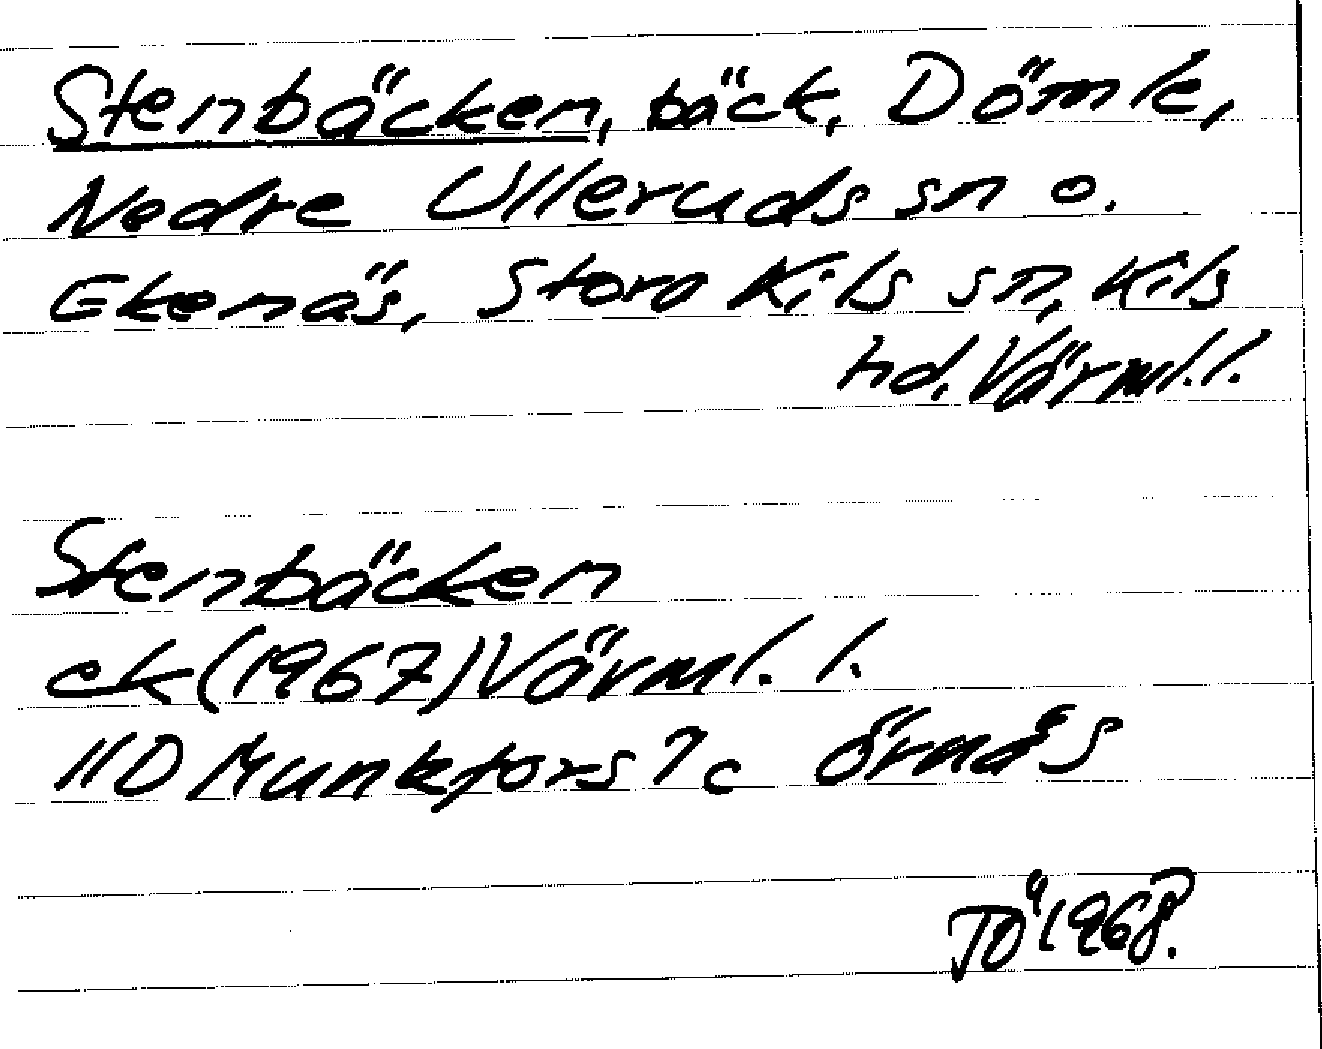 Stenbäcken, bäck, Dömle,
Nedre Ulleruds sn o.
Ekenäs, Stora Kils sn, Kils
hd. Värml. l.
Stenbäcken
ek (1967) Värml. l.
11D Munkfors 7c Örnäs
TÖ 1968.